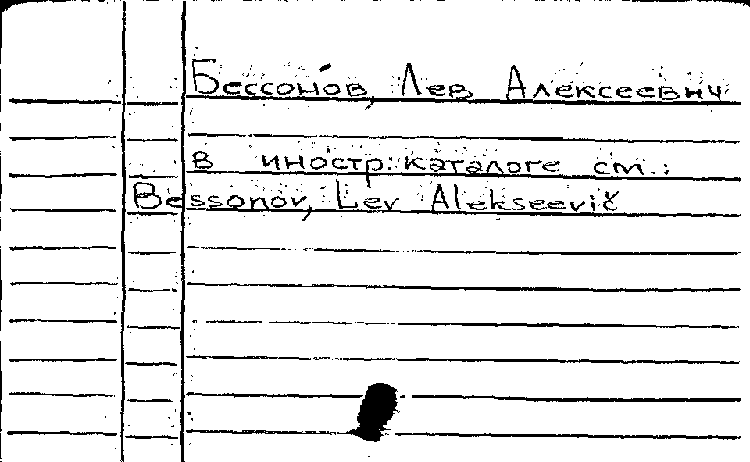 Бессоно́в, Лев Алексеевич
в иностр. каталоге см.:
Bessonov, Lev Alekseevič